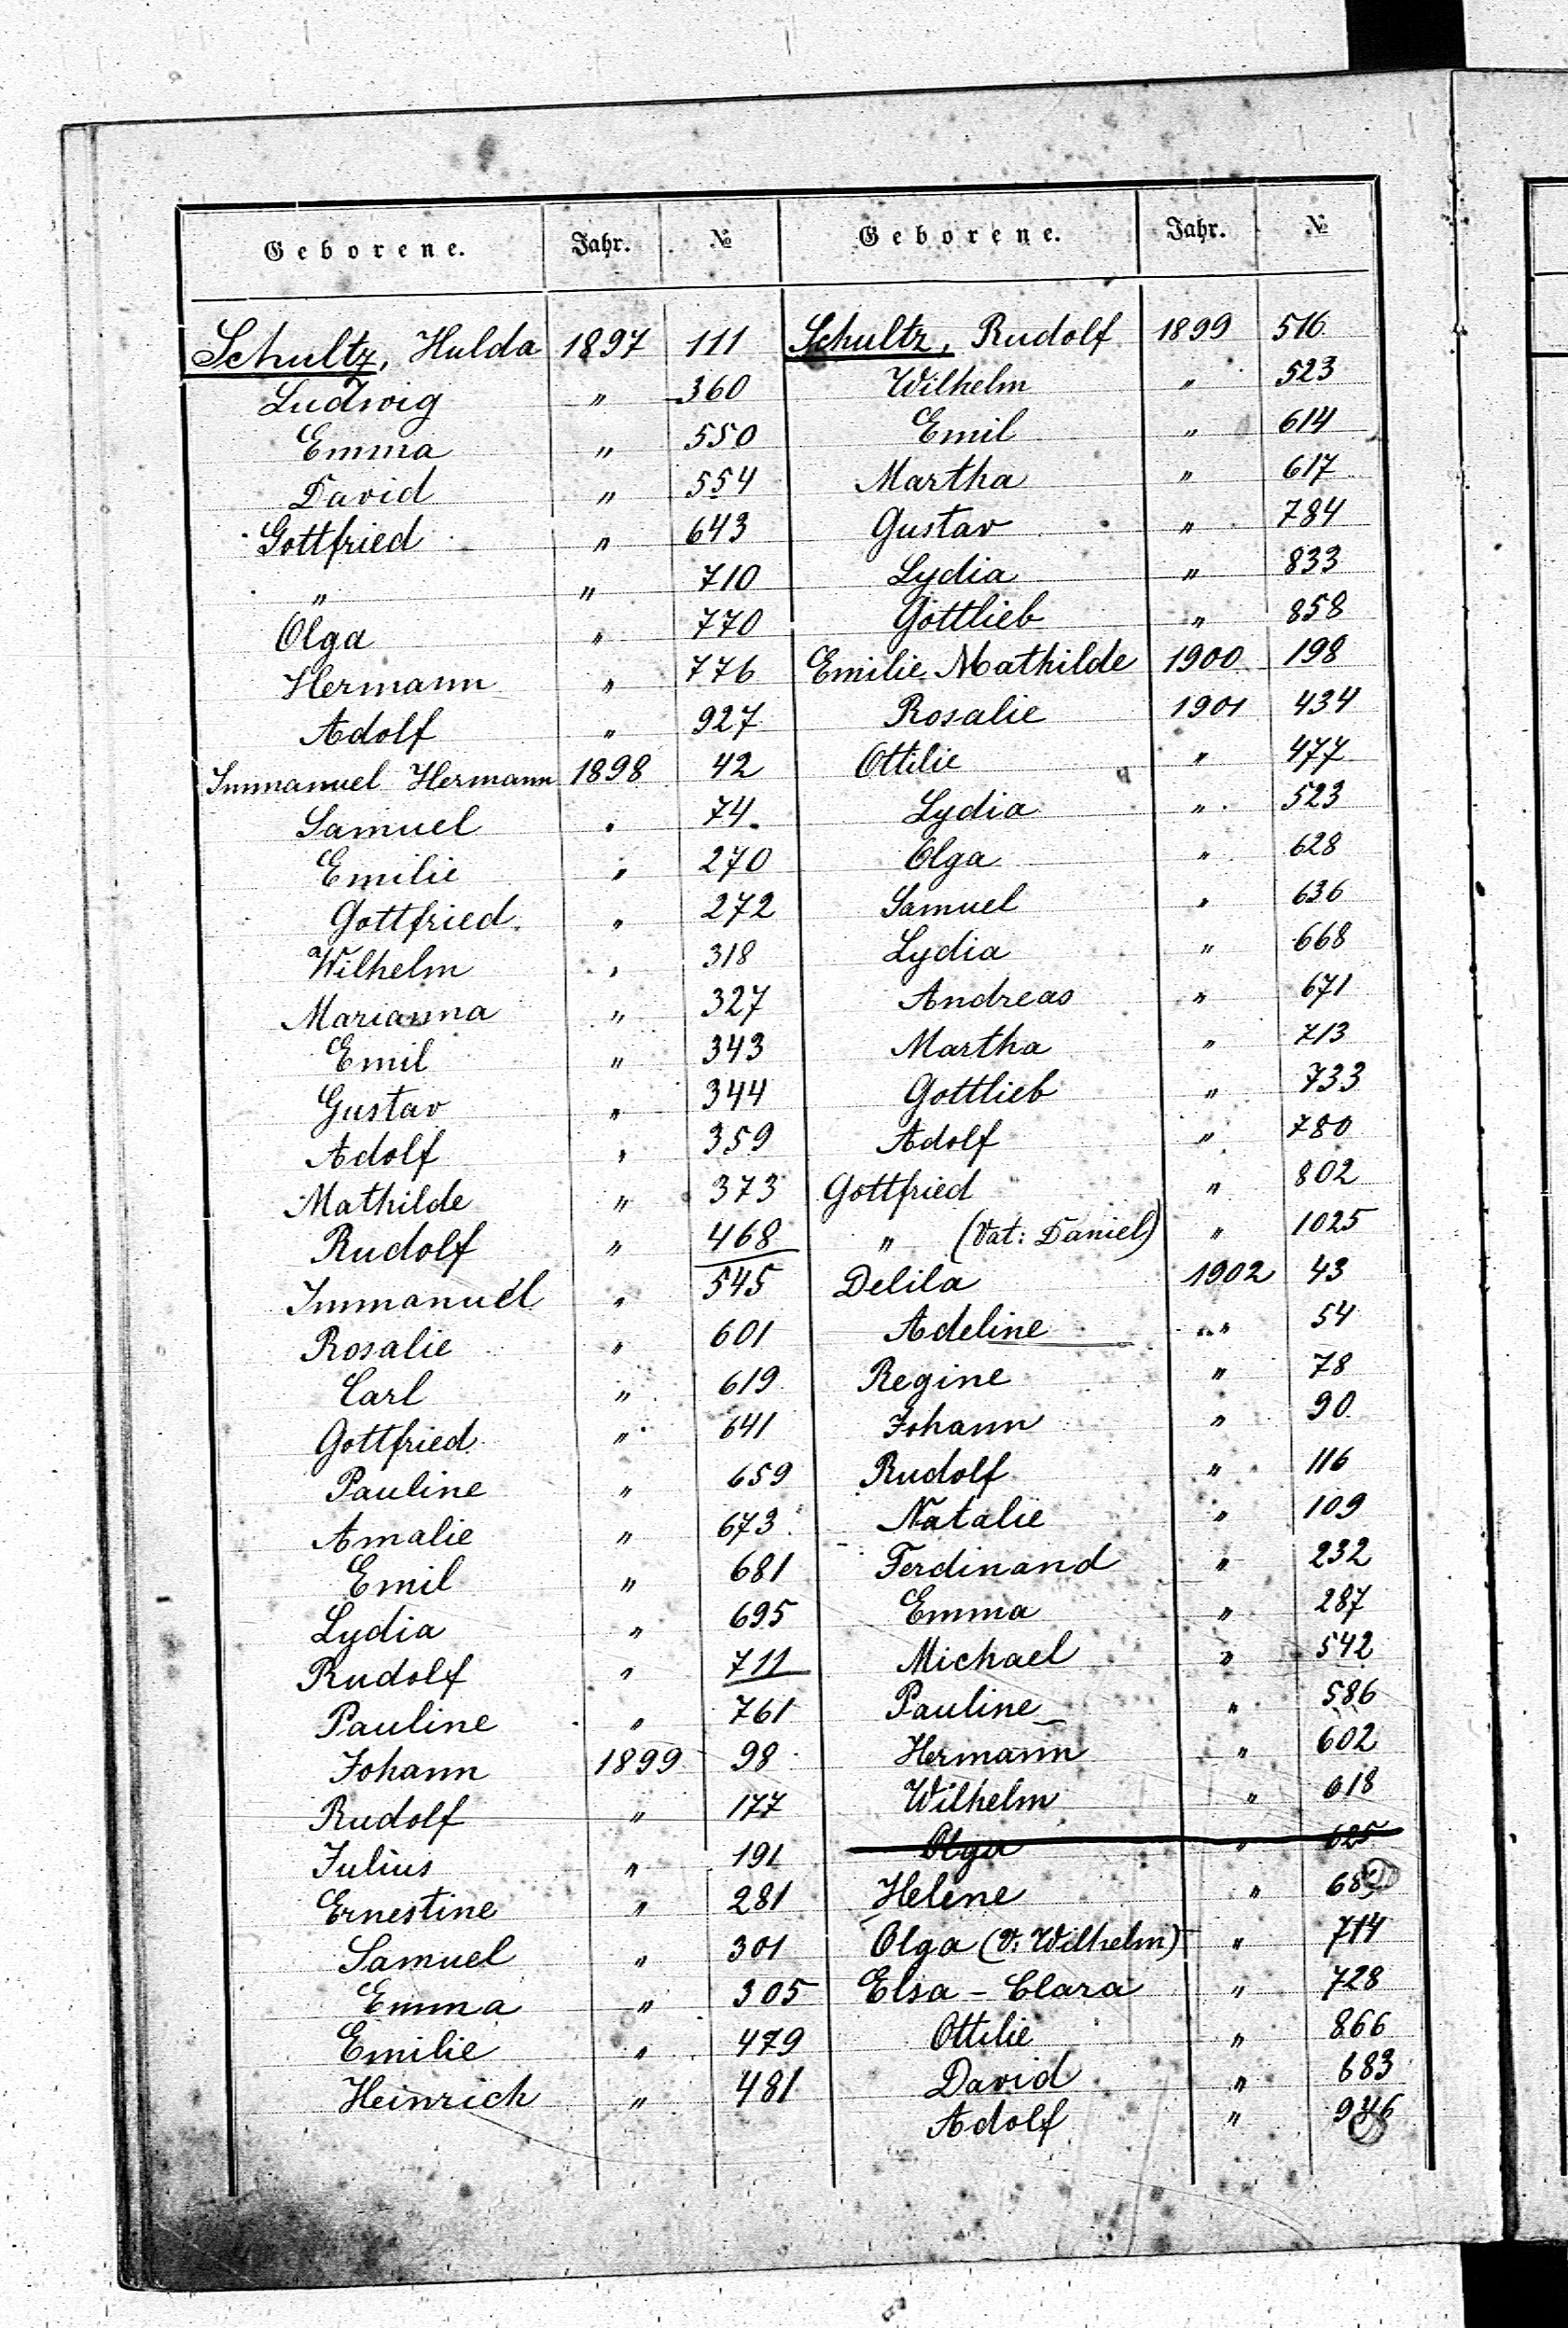 Geborene. Jahr. №
Schultz, Hulda 1897 111
Ludwig " 360
Emma " 550
David " 554
Gottfried " 643
" " 710
Olga " 770
Hermann " 776
Adolf " 927
Immanuel Hermann 1898 42
Samuel " 74
Emilie " 270
Gottfried " 272
Wilhelm " 318
Marianna " 327
Emil " 343
Gustav " 344
Adolf " 359
Mathilde " 373
Rudolf " 468
Immanuel " 545
Rosalie " 601
Carl " 619
Gottfried " 641
Pauline " 659
Amalie " 673
Emil " 681
Lydia " 695
Rudolf " 711
Pauline " 761
Johann 1899 98
Rudolf " 177
Julius " 191
Ernestine " 281
Samuel " 301
Emma " 305
Emilie " 479
Heinrich " 481
Geborene. Jahr. №
Schultz, Rudolf 1899 516
Wilhelm " 523
Emil " 614
Martha " 617
Gustav " 784
Lydia " 833
Gottlieb " 858
Emilie Mathilde 1900 198
Rosalie 1901 434
Ottilie " 477
Lydia " 523
Olga " 628
Samuel " 636
Lydia " 668
Andreas " 671
Martha " 713
Gottlieb " 733
Adolf " 780
Gottfried " 802
" (Vat: Daniel) " 1025
Delila 1902 43
Adeline " 54
Regine " 78
Johann " 90
Rudolf " 116
Natalie " 109
Ferdinand " 232
Emma " 287
Michael " 542
Pauline " 586
Hermann " 602
Wilhelm " 618
Olga " 625
Helene "
Olga (V: Wilhelm) " 714
Elsa - Clara " 728
Ottilie " 866
David " 683
Adolf "